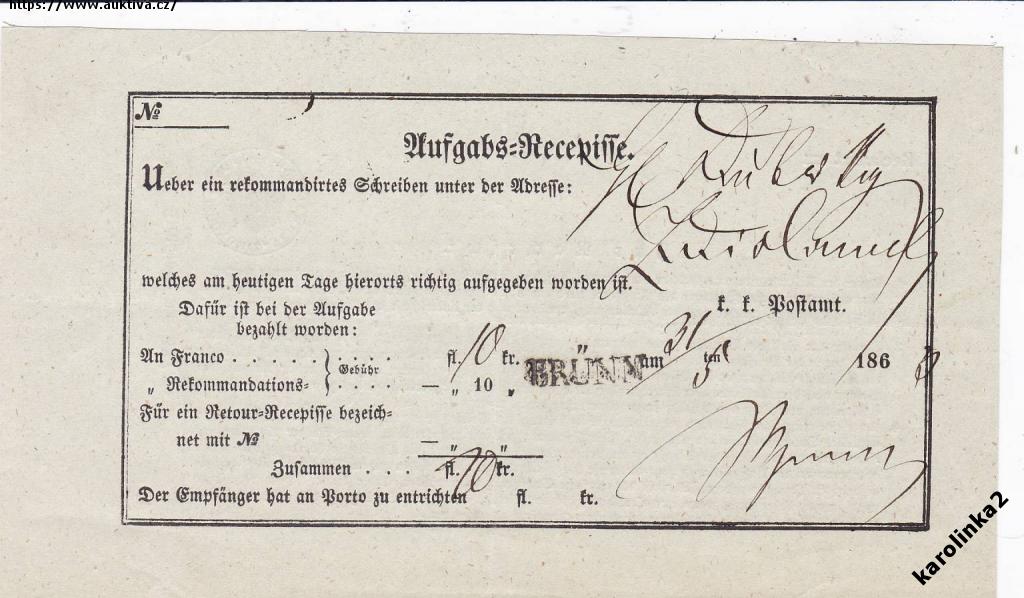 https://www.auktiva.cz/
№
Aufgabs-Recepisse.
Ueber ein rekommandirtes Schreiben unter der Adresse:
welches am heutigen Tage hierorts richtig aufgegeben worden ist.
Dafür ist bei der Aufgabe
bezahlt worden:
k. k. Postamt.
An Franco . . . . . } . . . . fl. 10 kr.
Gebühr
BRÜNN am 31/5 ten 186
„ Rekommandations- } . . . . — „ 10 „
Für ein Retour-Recepisse bezeich-
net mit № — „ „
Zusammen . . . fl. kr.
Der Empfänger hat an Porto zu entrichten fl. kr.
karolinka2